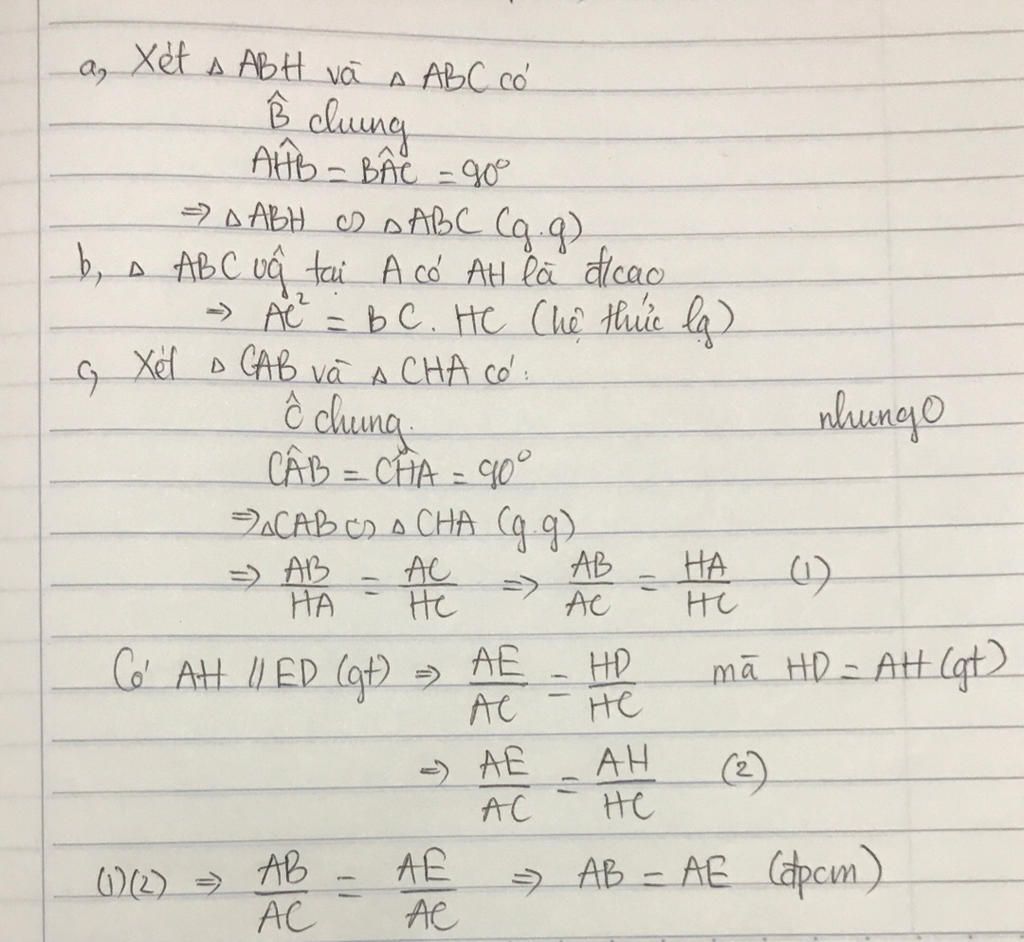 a, Xét △ ABH và △ ABC có
B̂ chung
AĤB = BÂC = 90°
⇒ △ABH ∽ △ABC (g.g)
b, △ ABC vĝ tại A có AH là đ/cao
⇒ AC² = BC. HC (hệ thức lg)
c, Xét △ CAB và △ CHA có:
Ĉ chung. nhungO
CÂB = CĤA = 90°
⇒△CAB ∽ △ CHA (g.g)
⇒ AB/HA = AC/HC ⇒ AB/AC = HA/HC (1)
Có AH // ED (gt) ⇒ AE/AC = HD/HC mà HD = AH (gt)
⇒ AE/AC = AH/HC (2)
(1)(2) ⇒ AB/AC = AE/AC ⇒ AB = AE (đpcm)